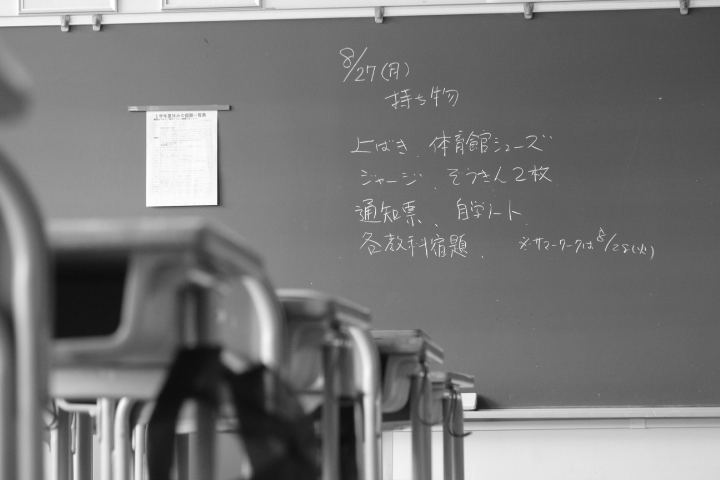 8/27(月)
持ち物
上ばき、体育館シューズ
ジャージ、ぞうきん2枚
通知票、自学ノート
各教科宿題、※サマーワークは8/28(火)